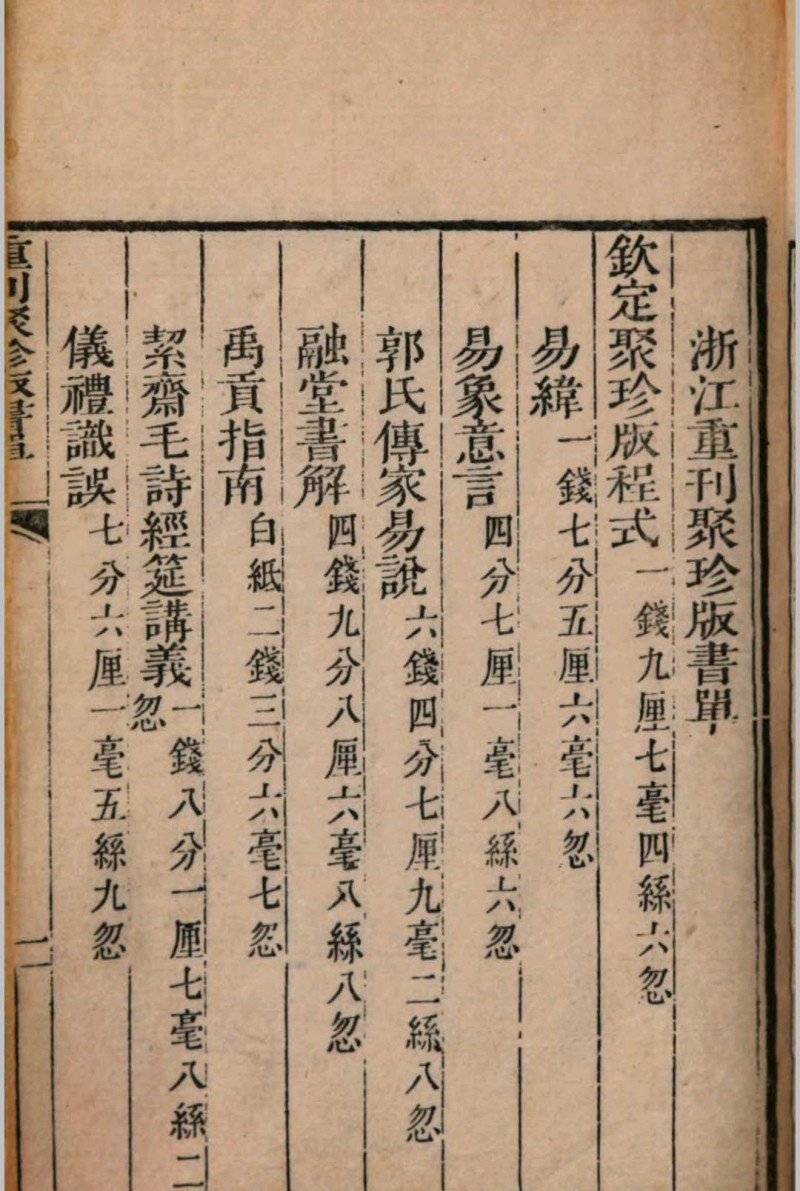 浙江重刊聚珍版書單
欽定聚珍版程式一錢九厘七毫四絲六忽
易緯一錢七分五厘六毫六忽
易象意言四分七厘一毫八絲六忽
郭氏傳家易說六錢四分七厘九毫二絲八忽
融堂書解四錢九分八厘六毫八絲八忽
禹貢指南白紙二錢三分六毫七忽
絜齋毛詩經筵講義一錢八分一厘七毫八絲二忽
儀禮識誤七分六厘一毫五絲九忽
重刊聚珍版書單 一